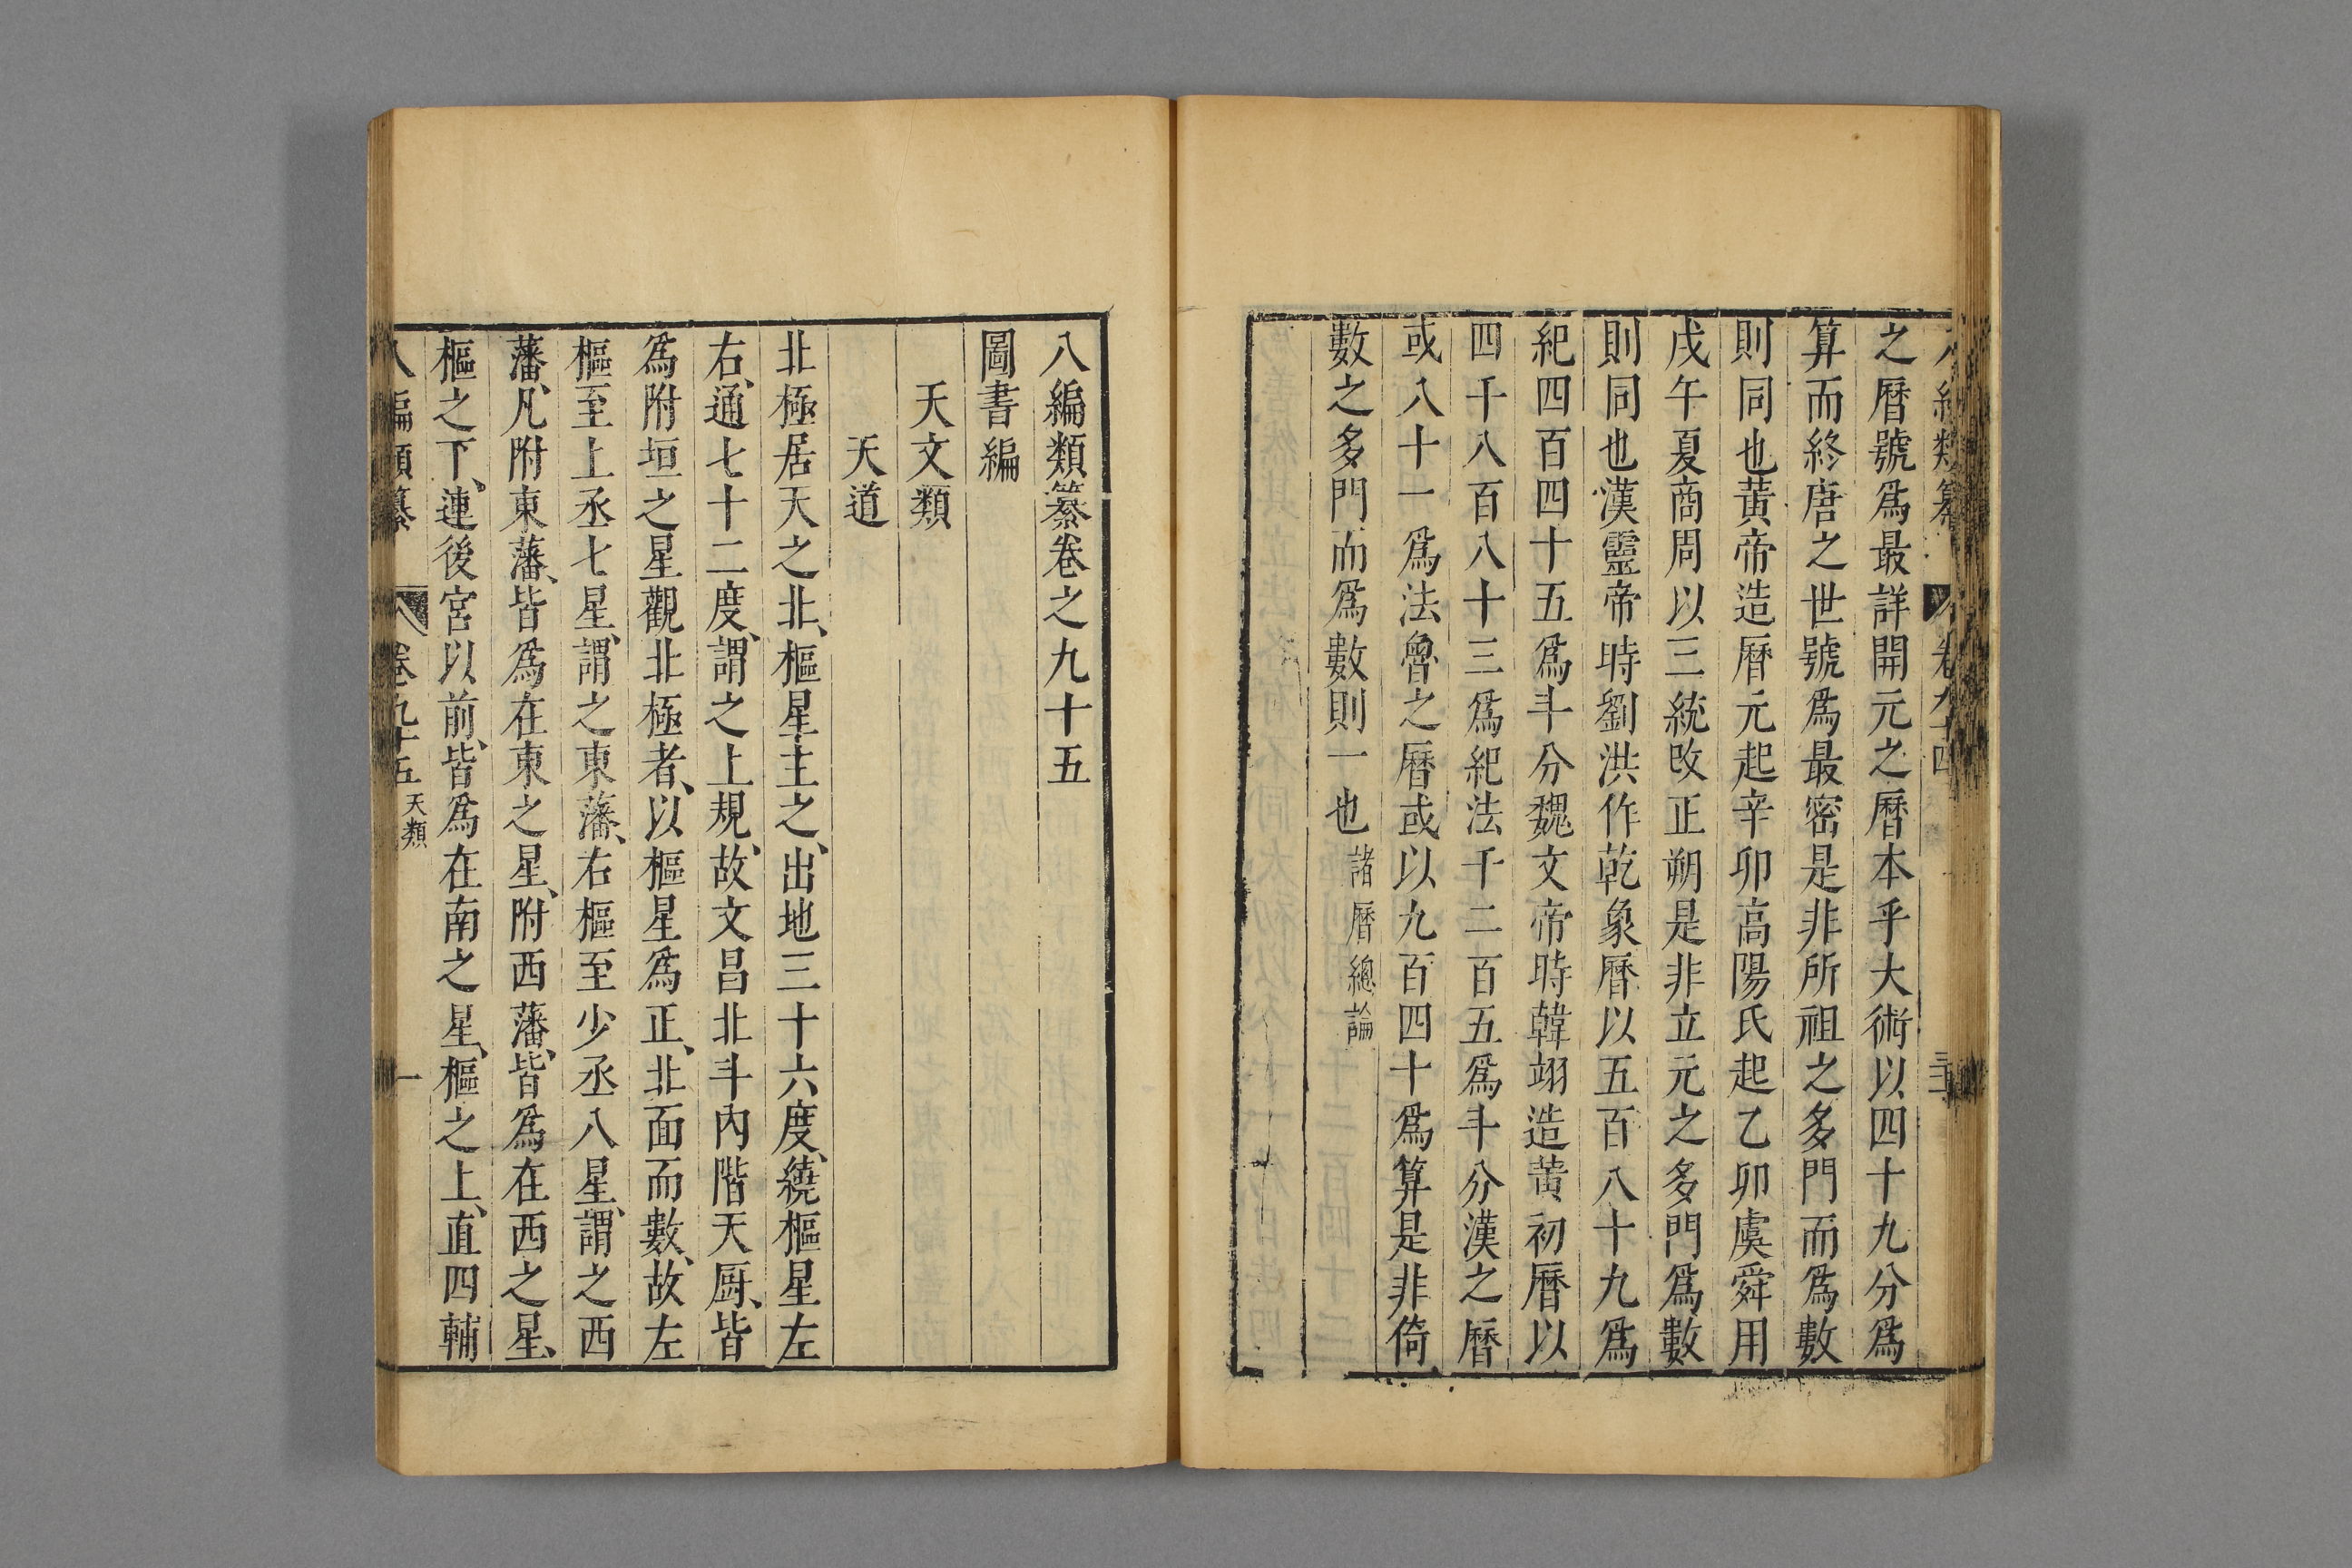 之曆號爲最詳開元之曆本乎大術以四十九分爲
算而終唐之世號爲最密是非所祖之多門而爲數
則同也黃帝造曆元起辛卯高陽氏起乙卯虞舜用
戊午夏商周以三統改正朔是非立元之多門爲數
則同也漢靈帝時劉洪作乾象曆以五百八十九爲
紀四百四十五爲斗分魏文帝時韓翊造黃初曆以
四千八百八十三爲紀法千二百五爲斗分漢之曆
或八十一爲法魯之曆或以九百四十爲算是非倚
數之多門而爲數則一也諸曆總論
八編類纂卷之九十五
圖書編
天文類
天道
北極居天之北、樞星主之、出地三十六度、繞樞星左
右、通七十二度、謂之上規、故文昌北斗內階天厨、皆
爲附垣之星觀北極者、以樞星爲正、北面而數、故左
樞至上丞七星、謂之東藩、右樞至少丞八星、謂之西
藩、凡附東藩、皆爲在東之星、附西藩、皆爲在西之星、
樞之下、連後宮以前、皆爲在南之星、樞之上、直四輔
八編類纂 卷九十五 天類 一